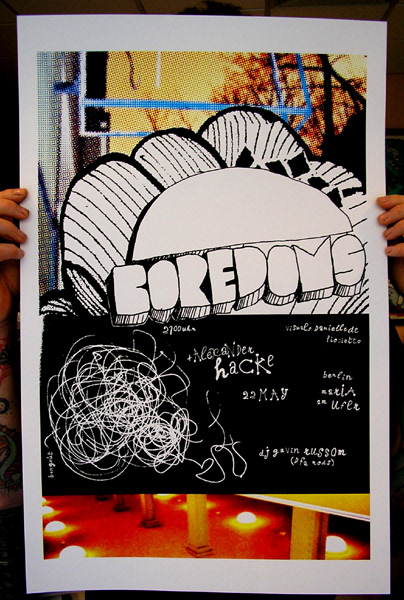 BOREDOMS
2100uhr
visuals danielle de
picciotto
+ Alexander
hacke
berlin
22 MAY
mariA
am
UFER
dj gavin RUSSOM
(DFA rcds)